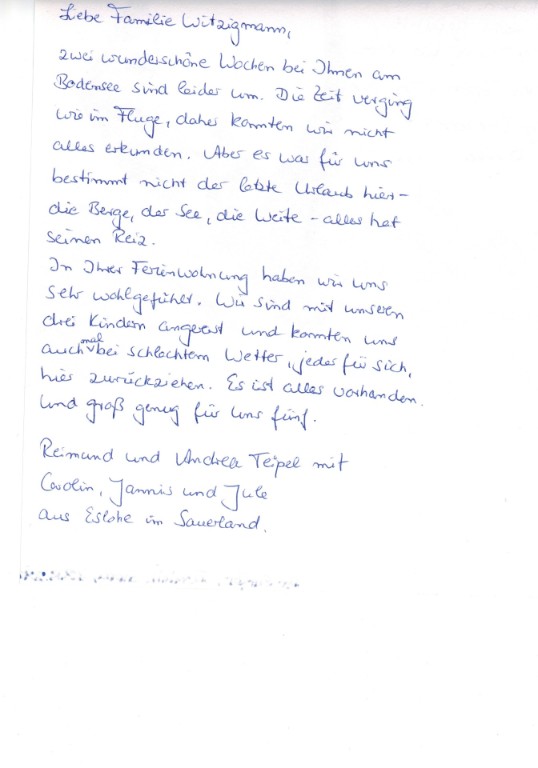 Liebe Familie Witzigmann,
zwei wunderschöne Wochen bei Ihnen am
Bodensee sind leider um. Die Zeit verging
wie im Fluge, daher konnten wir nicht
alles erkunden. Aber es war für uns
bestimmt nicht der letzte Urlaub hier -
die Berge, der See, die Weite - alles hat
seinen Reiz.
In Ihrer Ferienwohnung haben wir uns
sehr wohlgefühlt. Wir sind mit unseren
drei Kindern angereist und konnten uns
auch mal bei schlechtem Wetter, jeder für sich,
hier zurückziehen. Es ist alles vorhanden.
Und groß genug für uns fünf.
Reimund und Andrea Teipel mit
Carolin, Jannis und Jule
aus Eslohe im Sauerland.